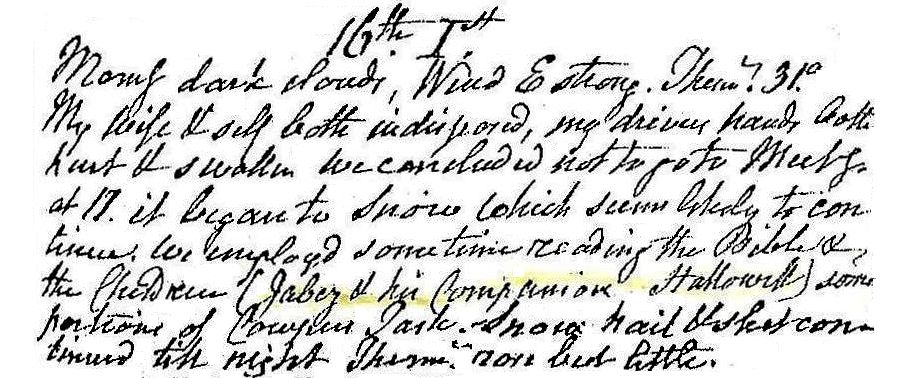 16th 1st
Morng dark clouds, Wind E strong. Therm. 31.°
My Wife & self both indisposed, my drivers hands both
hurt & swollen we concluded not to go to Meetg.
at 17. it began to Snow which seems likely to con
tinue. we employd sometime reading the Bible &
the Children (Jabez & his Companion Hallowell) some
portions of Cowpers Task. Snow hail & sleet con-
tinued till night Therm. rose but little.